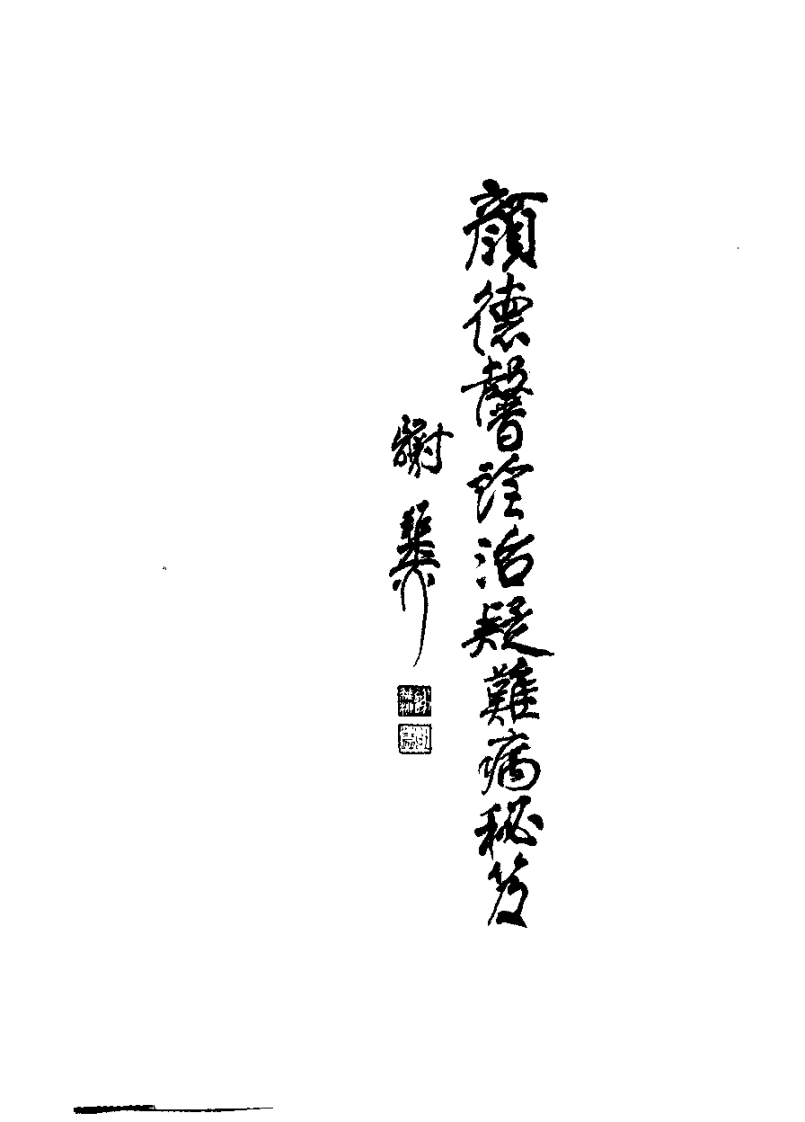 顔德馨診治疑難病秘笈
謝